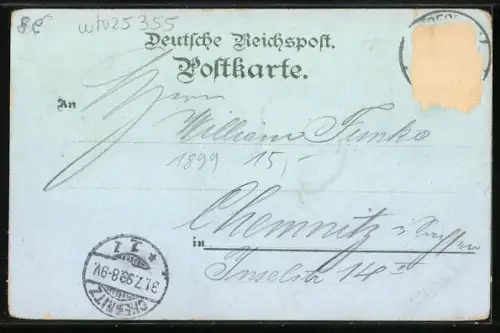 wf025355
Deutsche Reichspost.
Postkarte.
An Herrn
William Funke
1899 15,-
Chemnitz i. Sachsen
in Inselstr 14 II
CHEMNITZ
* 1. 1
31.7.99.8-9V.